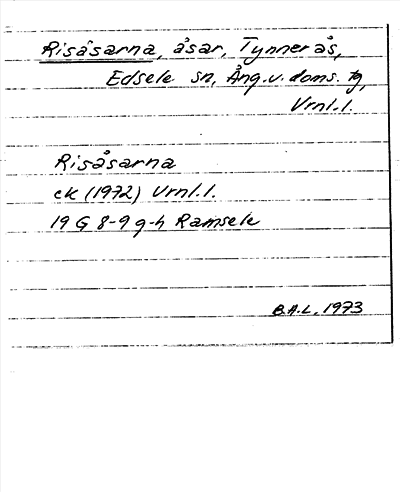 Risåsarna, åsar, Tynnerås,
Edsele sn, Ång.v. doms. tg,
Vrnl.l.
Risåsarna
ek (1972) Vrnl.l.
19 G 8-9 g-h Ramsele
B.A.L. 1973